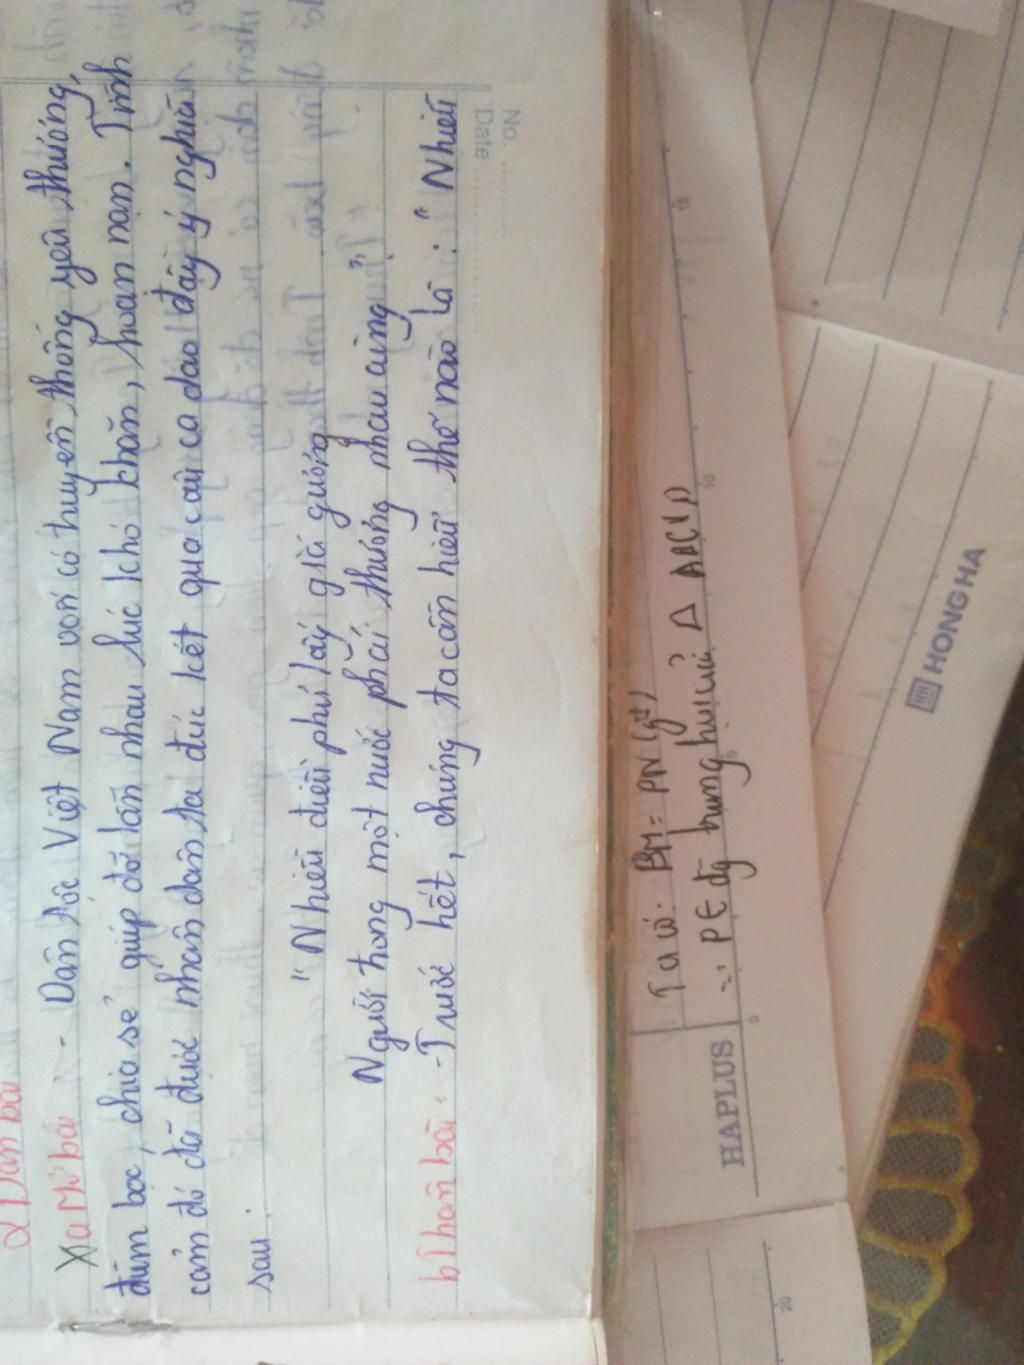 2 Dàn bài
a Mở bài - Dân tộc Việt Nam vốn có truyền thống yêu thương,
đùm bọc, chia sẻ giúp đỡ lẫn nhau lúc khó khăn, hoạn nạn. Tình
cảm đó đã được nhân dân ta đúc kết qua câu ca dao đầy ý nghĩa
sau:
"Nhiễu điều phủ lấy giá gương
Người trong một nước phải thương nhau cùng"
b) Thân bài: - Trước hết, chúng ta cần hiểu thế nào là: "Nhiễu
No.
Date
Ta có: BM = PN (gt)
=> PE đg trung trực của Δ
HAPLUS
0
5
10
15
20
HONG HA